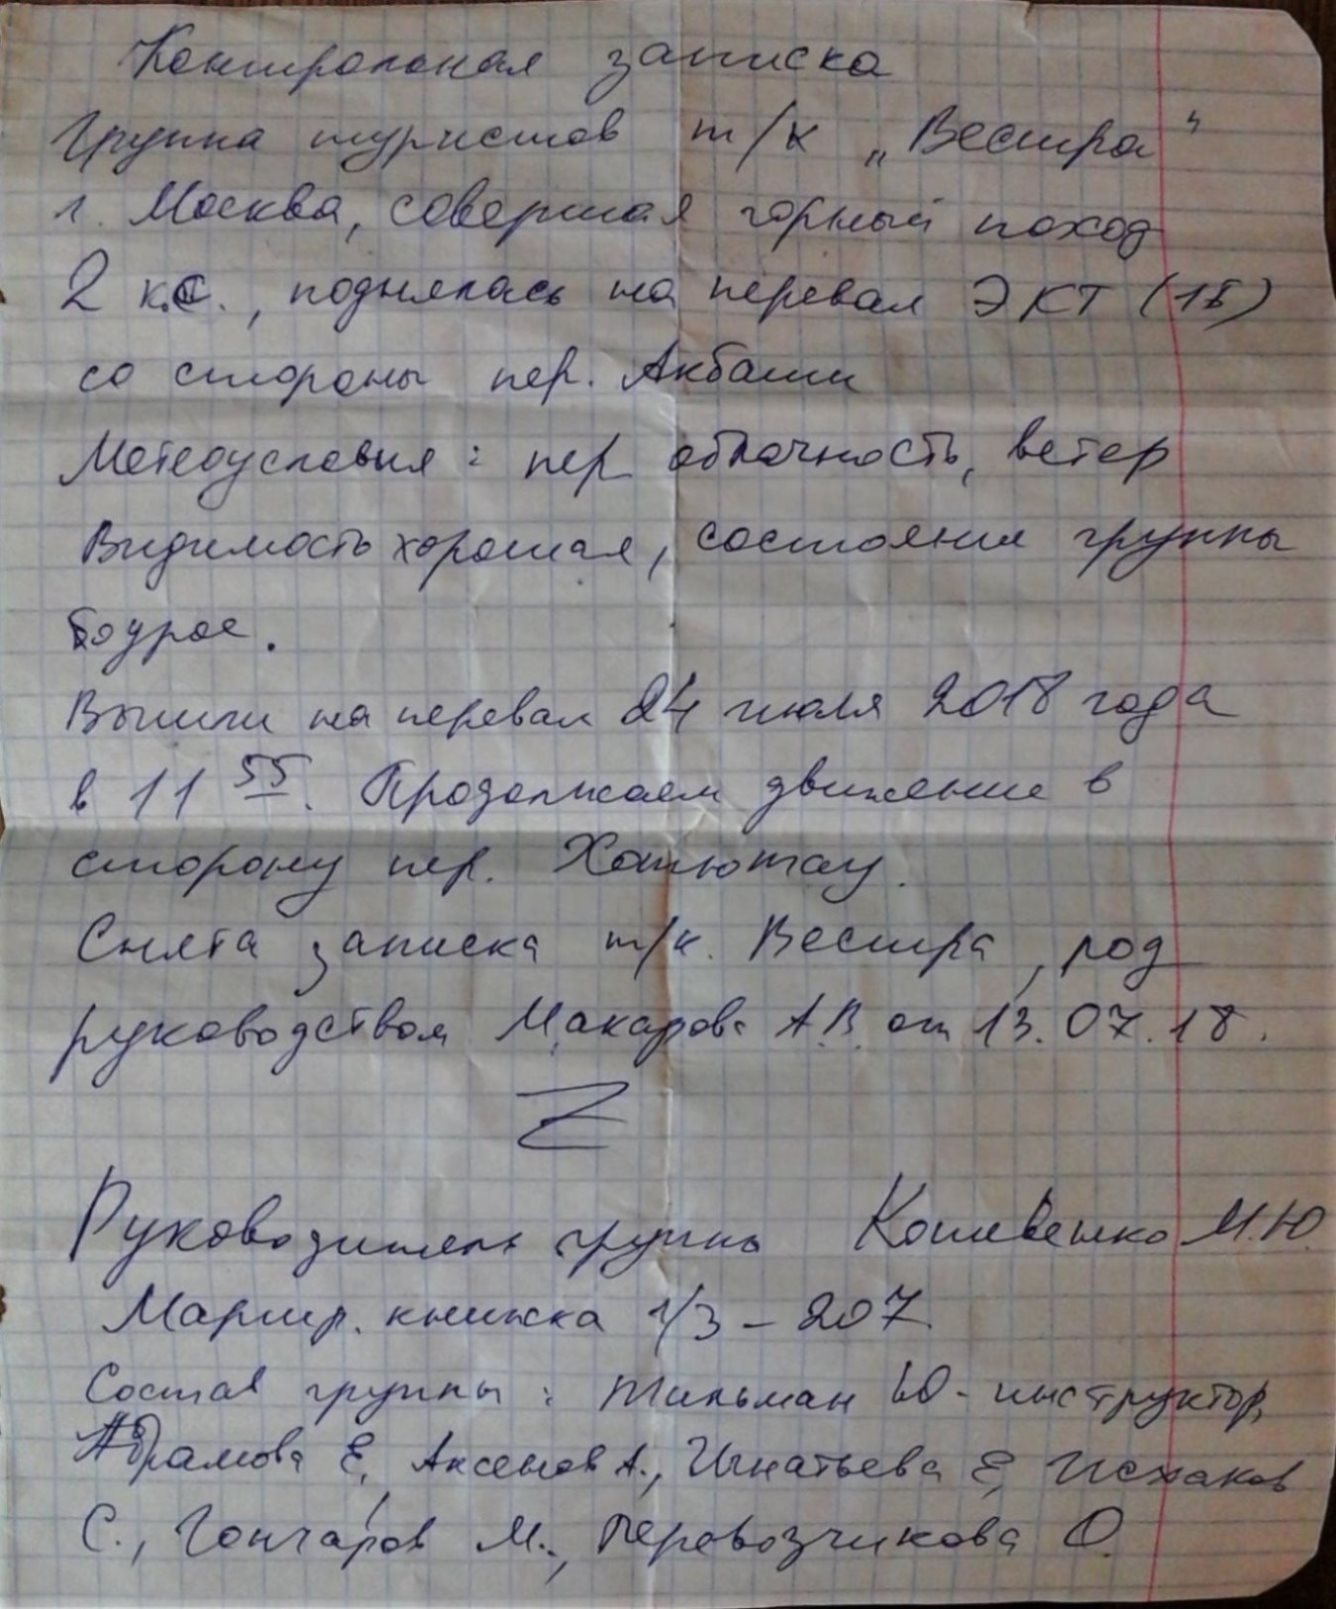 Контрольная записка
Группа туристов т/к „Вестра"
г. Москва, совершая горный поход
2 к.с., поднялась на перевал ЭКТ (1Б)
со стороны пер. Акбаши
Метеоусловия: пер облачность, ветер
Видимость хорошая, состояние группы
бодрое.
Вышли на перевал 24 июля 2018 года
в 11 55. Продолжаем движение в
сторону пер. Хотютау.
Снята записка т/к. Вестра, под
руководством Макарова А.В. от 13.07.18.
Z
Руководитель группы Кошевенко М.Ю.
Маршр. книжка 1/3 - 207
Состав группы: Тильман Ю - инструктор,
Абрамова Е, Аксенов А., Игнатьева Е, Исхаков
С., Гончаров М., Перевозчикова О.